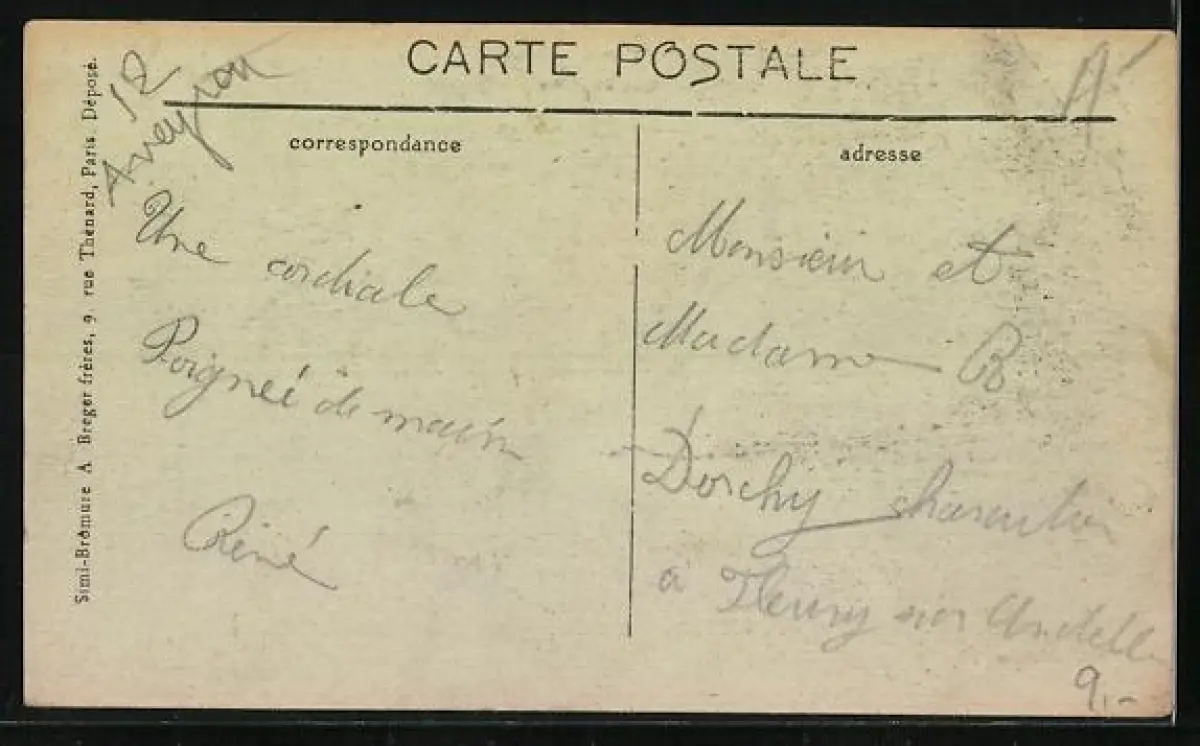 CARTE POSTALE
12
Aveyron
correspondance
Une cordiale
Poigneé de main
René
adresse
Monsieur et
Madame B
Dorchy charcutier
à Fleury sur Andelle
9.-
Simi-Bromure A. Breger frères, 9, rue Thénard, Paris. Déposé.